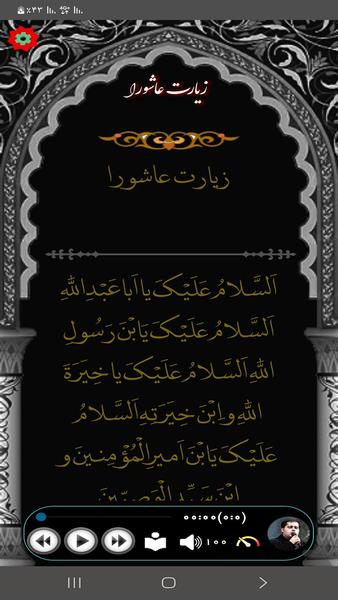 ٪۴۳
زیارت عاشورا
زیارت عاشورا
اَلسَّلامُ عَلَیْکَ یا اَبا عَبْدِاللهِ
اَلسَّلامُ عَلَیْکَ یَابْنَ رَسُولِ
اللهِ اَلسَّلامُ عَلَیْکَ یا خِیَرَةَ
اللهِ و ابْنَ خِیَرَتِهِ اَلسَّلامُ
عَلَیْکَ یَابْنَ اَمیرِ الْمُؤْمِنینَ و
ابْنَ سَیِّدِ الْوَصِیّینَ
00:00(0:0)
100